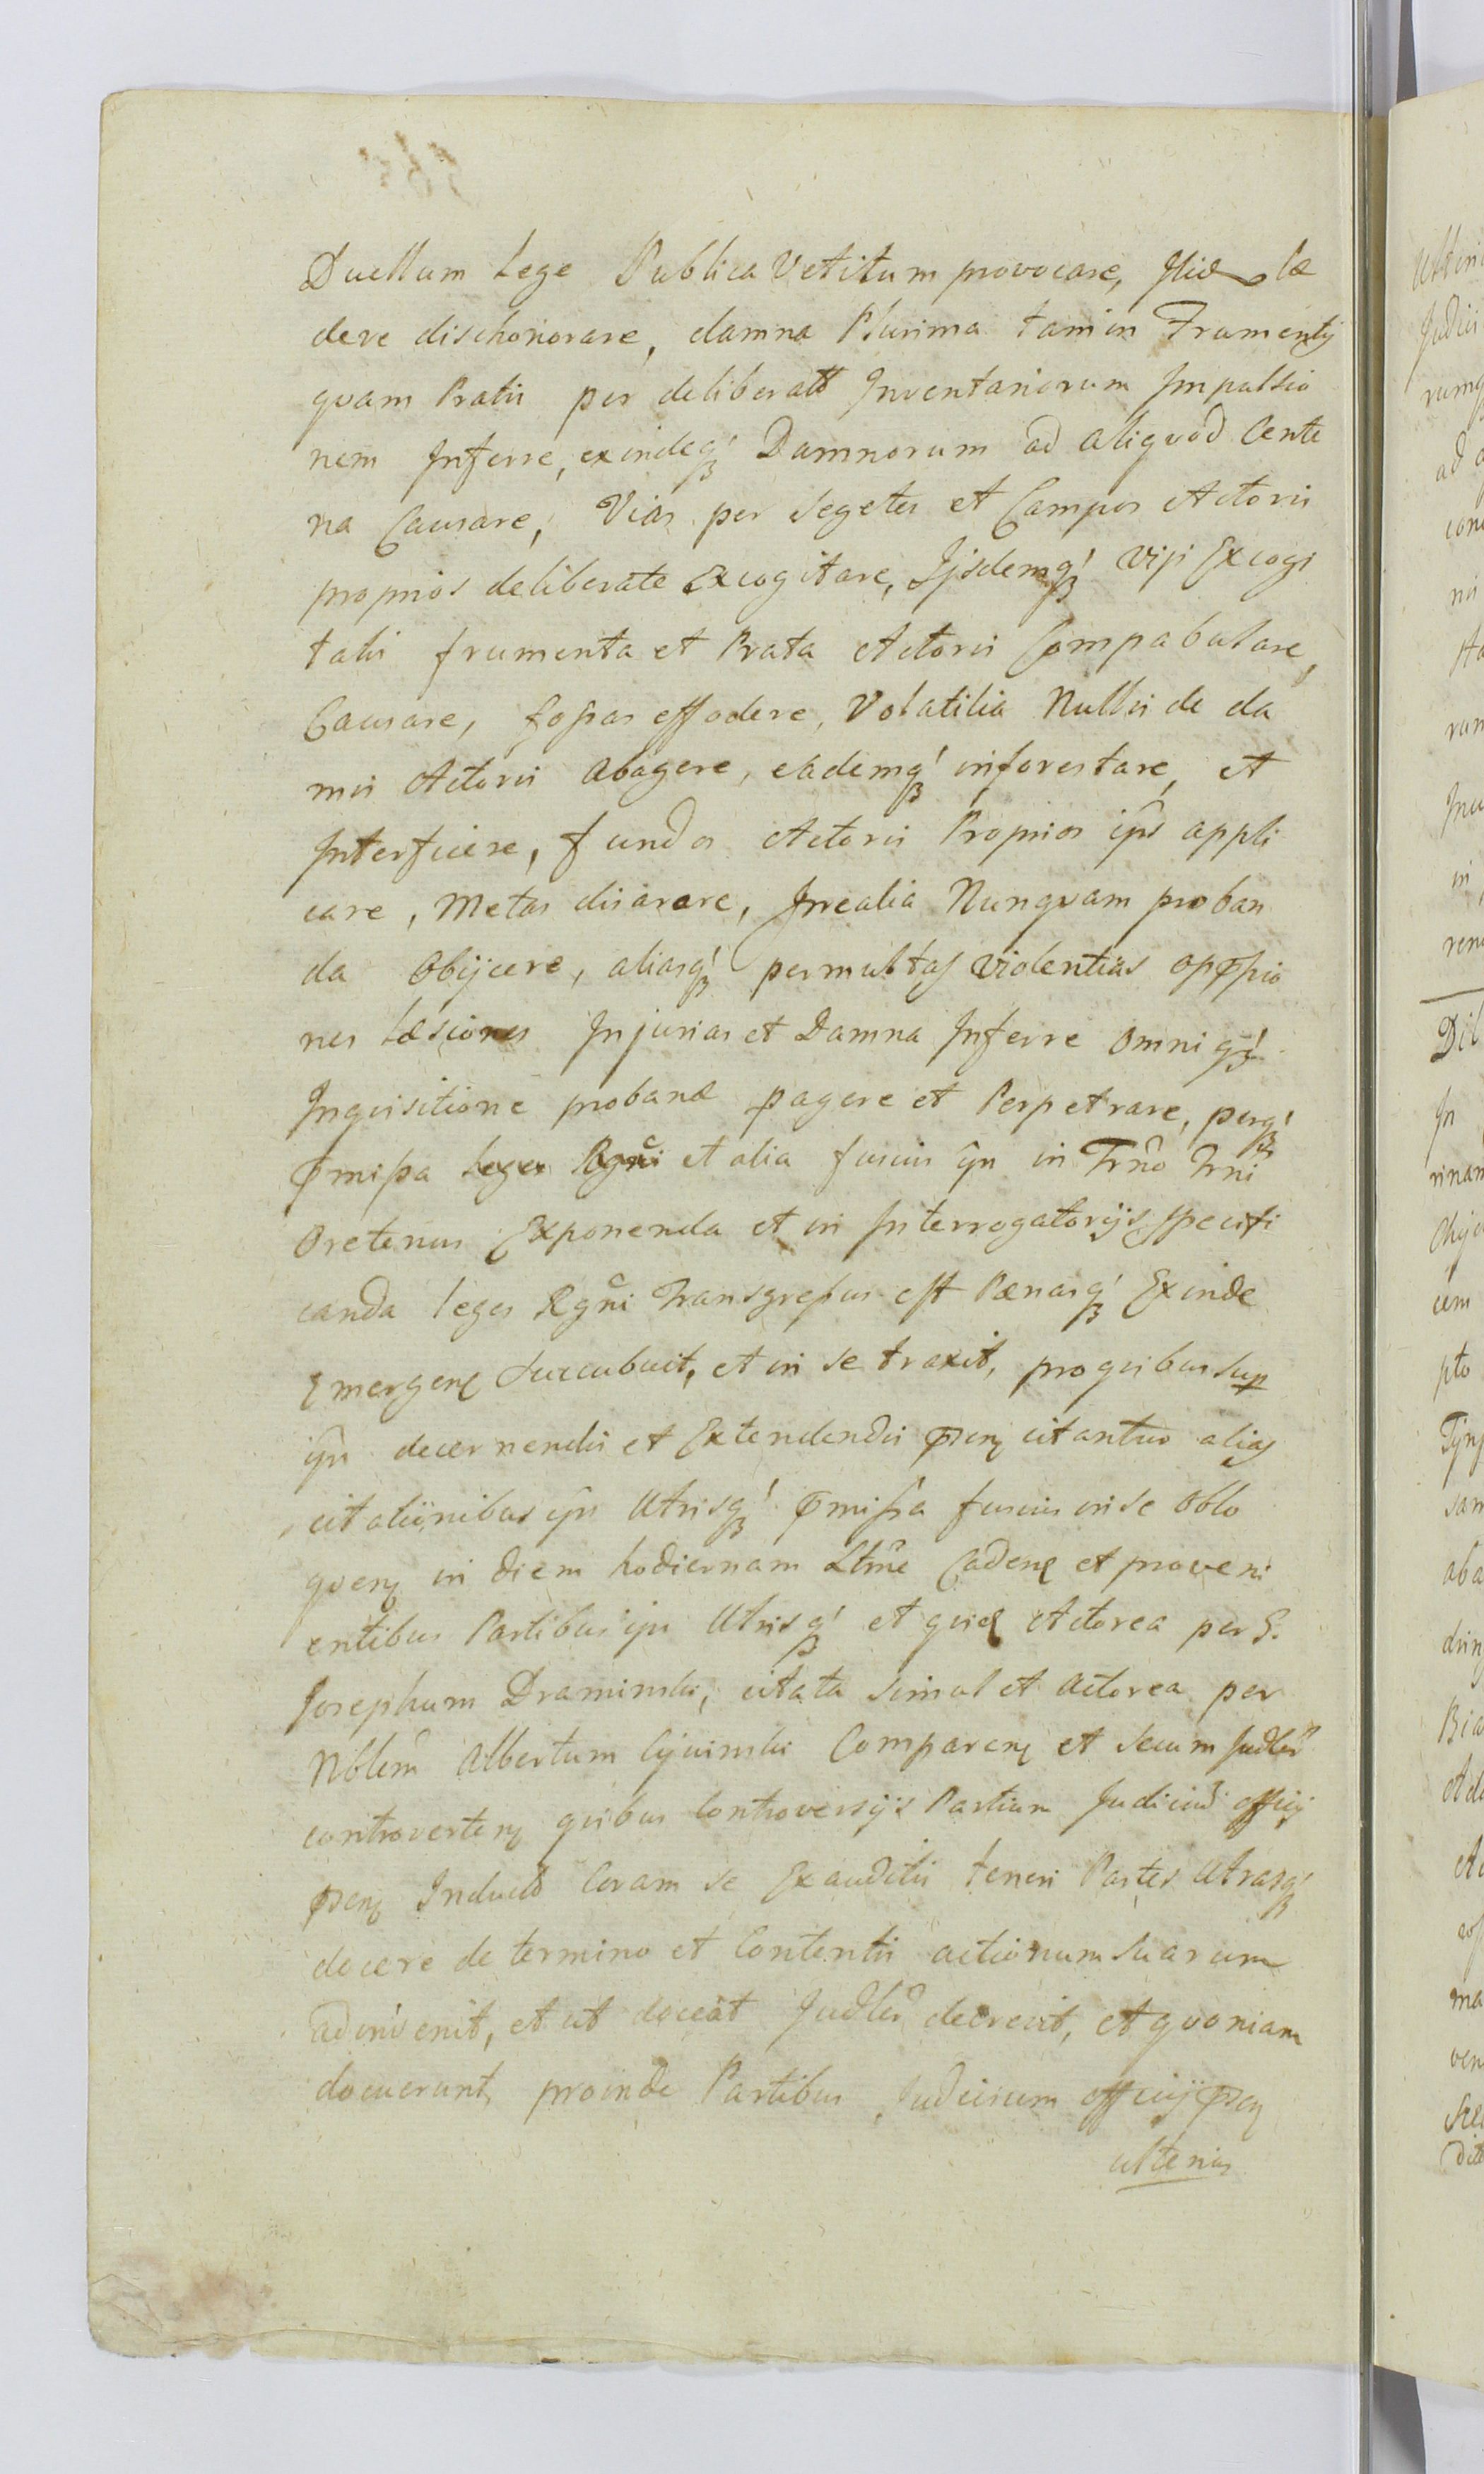 Duellum Lege Publica Vetitum provocare, læ
dere dischonorare, damna Plurima tam in Frumentis
qvam Pratis per deliberatt Inventariorum Impulsio
nem Inferre, exindeq́ꝫ Damnorum ad aliqvod Cente
na Causare, Vias per Segetes et Campos Actoris
proprios deliberate Excogitare, Ijsdemq́ꝫ vijs Excogi
tatis frumenta et Prata Actoris Compabulare,
Causare, fossas effodere, Volatilia Nullis de da
mis Actoris Abagere, eademq́ꝫ inforestare, et
Interficere, fundos Actoris Proprios ips appli
care, Metas disarare, Irrealia Nunqvam proban
da Obijcere, aliasq́ꝫ permultas violentias oppssio
nes Læsiones Injurias et Damna Inferre Omniq́ꝫ
Inqvisitione probanæ pagere et Perpetrare, perq́ꝫ
pmissa Leges Rgni et alia fusius ijn in Trno Trni
Oretenus Exponenda et in Interrogatorijs specifi
canda leges Rgni Transgressus est Pænasq́ꝫ Exinde
Emergen Succubuit, et in se traxit, pro qvibus sup
ijs decernendis et Extendendis psen citantur alias
citationibus ijn Utrisq́ꝫ pmissa fusius in se Oblo
qven in diem hodiernam Ltme Caden et proveni
entibus Partibus ijn Utrisq́ꝫ et qvid Actorea per G.
Josephum Draminski, citata simul et Actorea per
Nblem Albertum Cijwinski Comparen et secum Judlr
controverten qvibus Controversijs Partium Judiciũ officij
psen Inducto Coram se Exauditis teneri Partes Utrasq́ꝫ
docere de termino et Contentis actionum suarum
adinvenit, et ut doceat Judlr decrevit, et qvoniam
docuerunt, proinde Partibus Judicium officij psen
ulterius